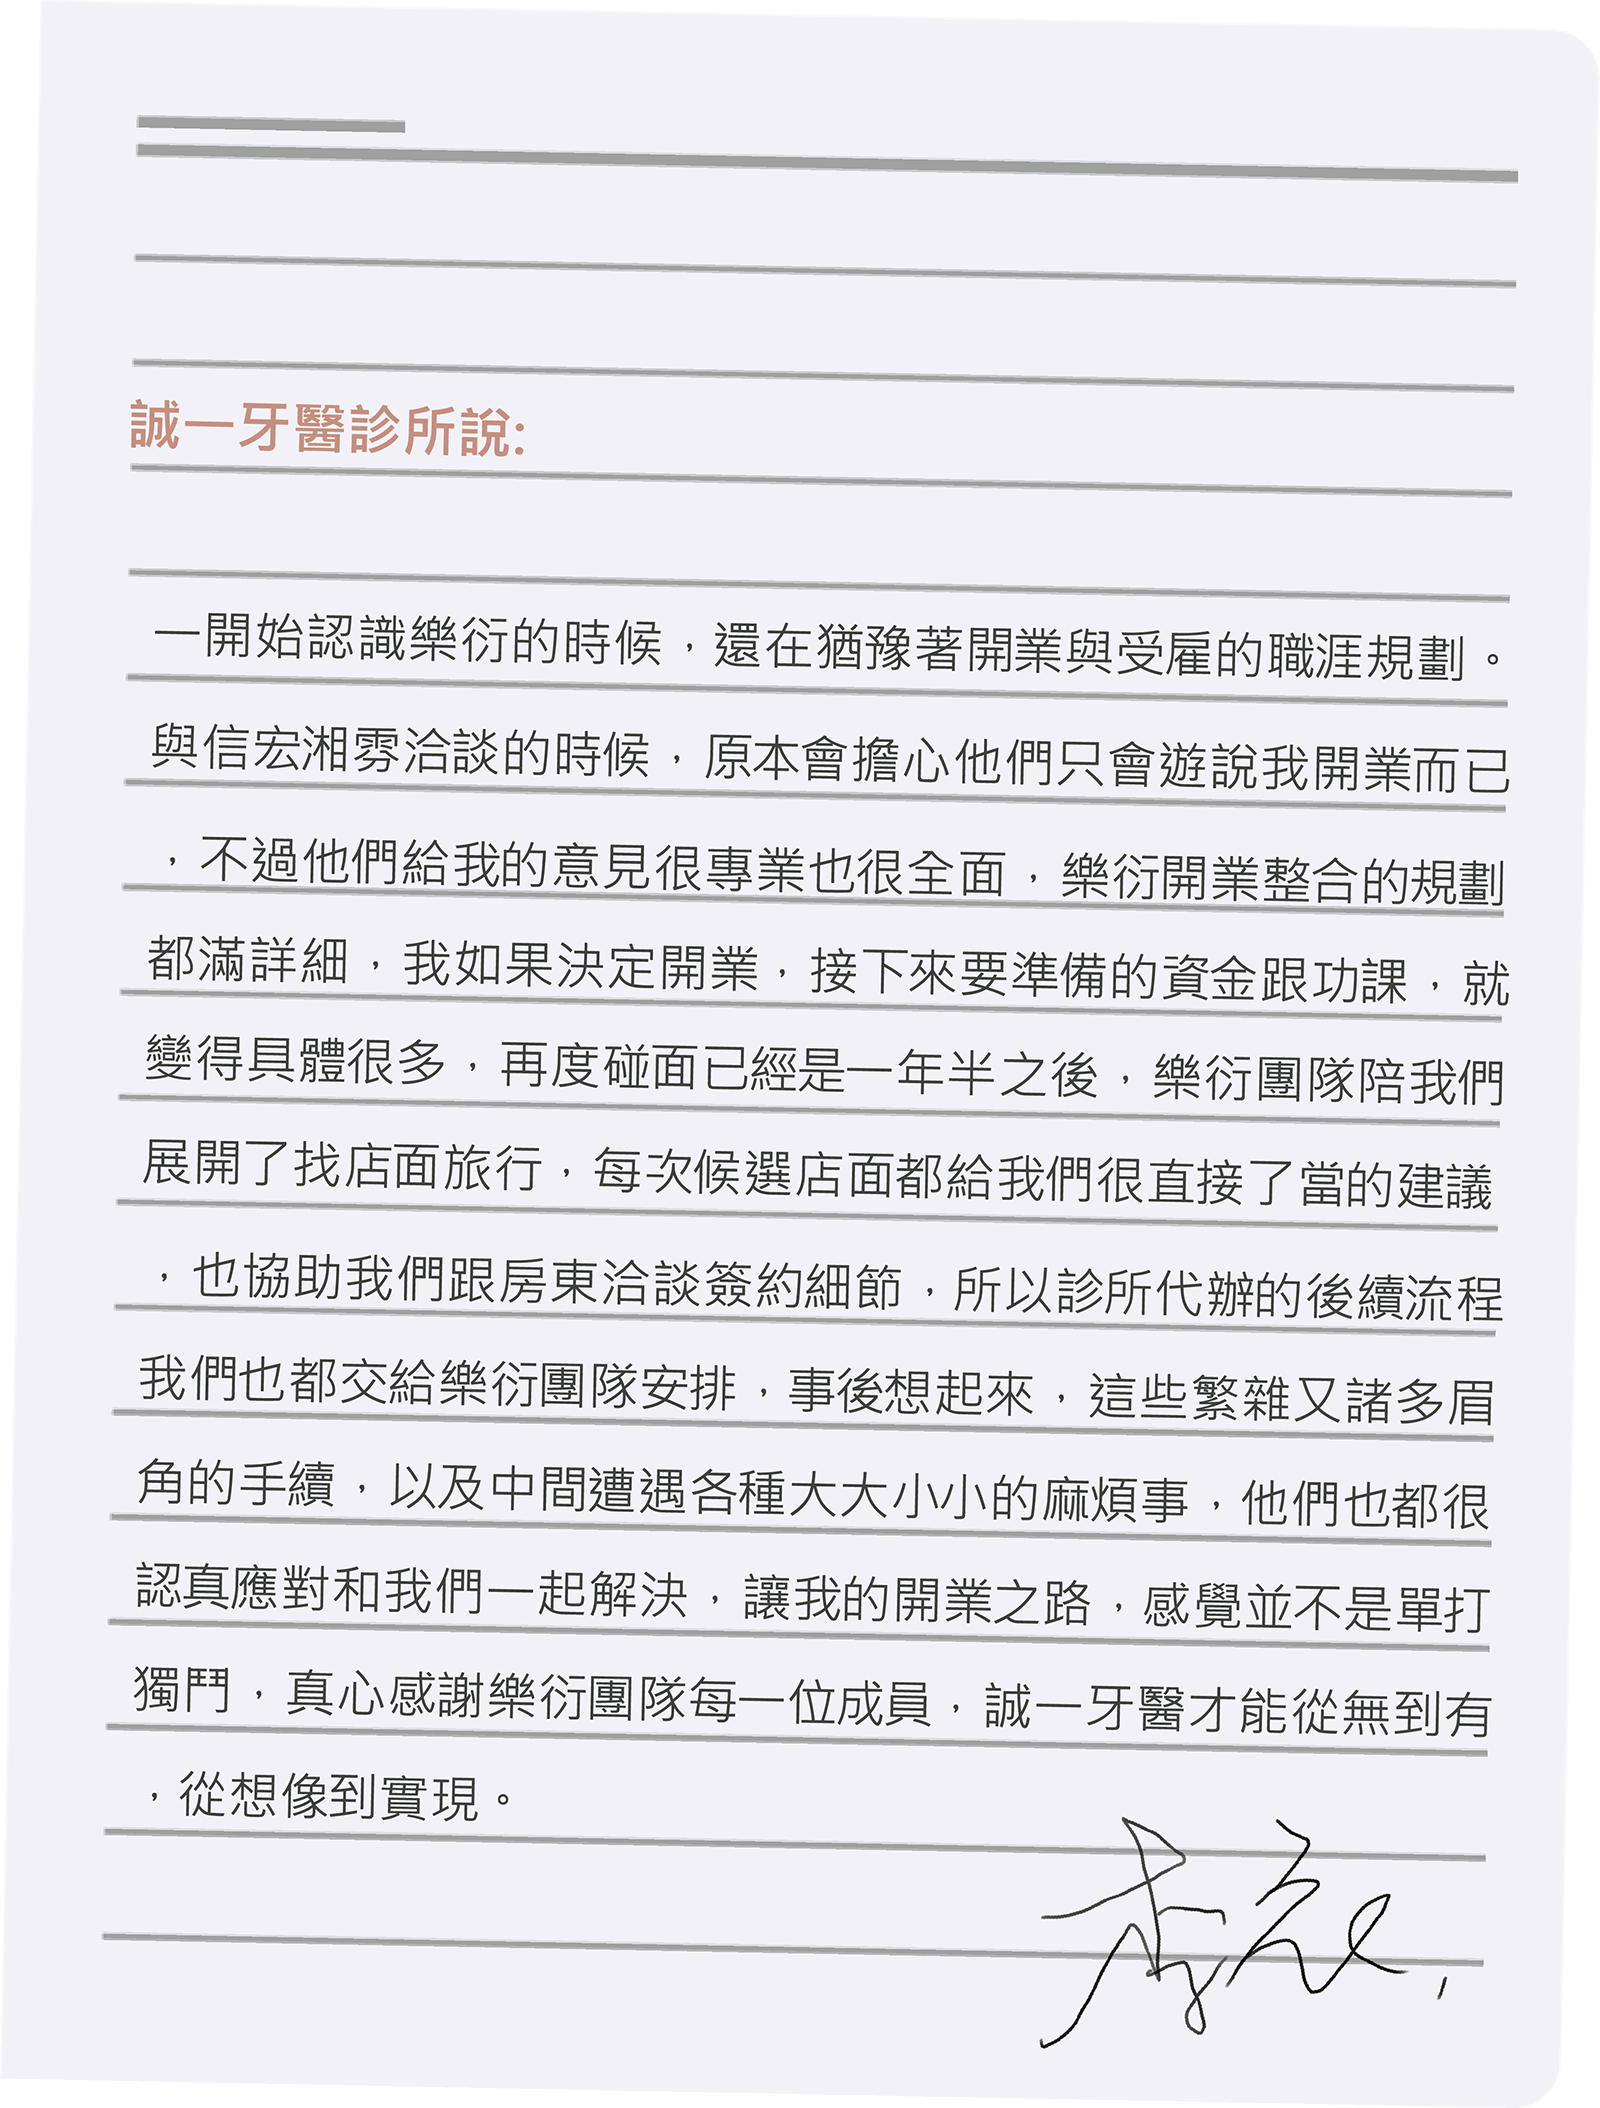 誠一牙醫診所說:
一開始認識樂衍的時候，還在猶豫著開業與受雇的職涯規劃。
與信宏湘雰洽談的時候，原本會擔心他們只會遊說我開業而已
，不過他們給我的意見很專業也很全面，樂衍開業整合的規劃
都滿詳細，我如果決定開業，接下來要準備的資金跟功課，就
變得具體很多，再度碰面已經是一年半之後，樂衍團隊陪我們
展開了找店面旅行，每次候選店面都給我們很直接了當的建議
，也協助我們跟房東洽談簽約細節，所以診所代辦的後續流程
我們也都交給樂衍團隊安排，事後想起來，這些繁雜又諸多眉
角的手續，以及中間遭遇各種大大小小的麻煩事，他們也都很
認真應對和我們一起解決，讓我的開業之路，感覺並不是單打
獨鬥，真心感謝樂衍團隊每一位成員，誠一牙醫才能從無到有
，從想像到實現。